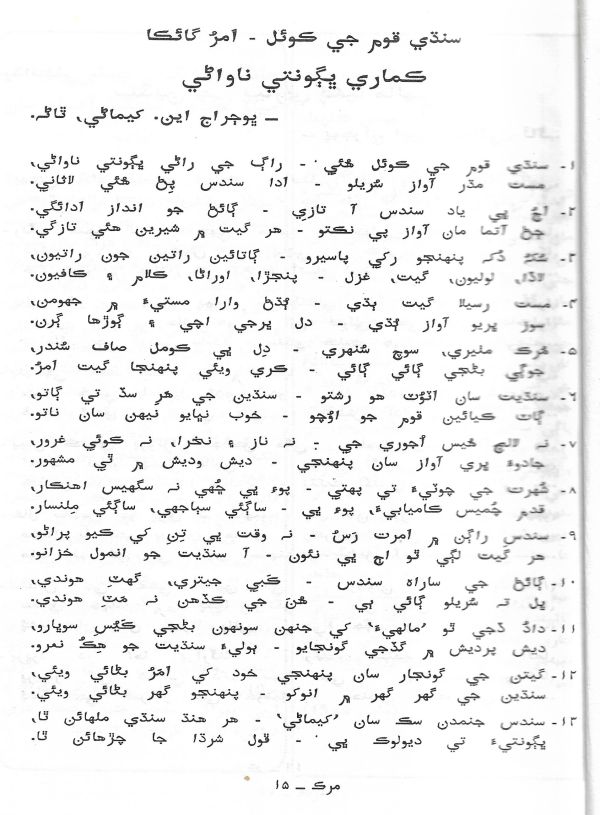 سنڌي قوم جي ڪوئل - امرُ گائڪا
ڪماري ڀڳونتي ناواڻي
— ڀوڄراج اين. ڪيماڻي، ٿاڻہ.
۱- سنڌي قوم جي ڪوئل هُئي - راڳ جي راڻي ڀڳونتي ناواڻي،
مست مڌر آواز سُريلو - ادا سندس پڻ هُئي لاثاني.
۲- اڄُ ڀي ياد سندس آ تازي - ڳائڻ جو انداز ادائگي.
ڄڻ آتما مان آواز پي نڪتو - هر گيت ۾ شيرين هئي تازگي.
۳- سُکَ دُک پنهنجو رکي پاسيرو - ڳاتائين راتين جون راتيون،
لاڏا، لوليون، گيت، غزل - پنجڙا، اوراڻا، ڪلام ۽ ڪافيون.
۴- مست رسيلا گيت ٻڌي - ٻُڌڻ وارا مستيءَ ۾ جهومن،
سوز ڀريو آواز ٻُڌي - دل ڀرجي اچي ۽ ڳوڙها ڳرن.
۵- مُرڪ مٺيري، سوچ سُنهري - دِل ڀي ڪومل صاف سُندر،
جوڳي بڻجي ڳائي ڳائي - ڪري ويئي پنهنجا گيت امرُ.
۶- سنڌيت سان اٽوُٽ هو رشتو - سنڌين جي هرِ سڏ تي ڳاتو،
ڳاٽ ڪيائين قوم جو اوُچو - خوب نڀايو نيهن سان ناتو.
۷- نہ لالچ هُيس اُجوري جي - نہ ناز ۽ نخرا، نہ ڪوئي غرور،
جادوءَ ڀري آواز سان پنهنجي - ديش وديش ۾ ٿي مشهور.
۸- شُهرت جي چوٽيءَ تي پهتي - پوءِ ڀي ڇُهي نہ سگهيس اهنڪار،
قدم چُميس ڪاميابيءَ، پوءِ ڀي - ساڳئي سٻاجهي، ساڳئي مِلنسار.
۹- سندس راڳن ۾ امرت رَسُ - نہ وقت ڀي تِن کي ڪيو پراڻو،
هر گيت لڳي ٿو اڄ ڀي نئون - آ سنڌيت جو انمول خزانو.
۱۰- ڳائڻ جي ساراہ سندس - ڪَبي جيتري، گهٽِ هوندي،
ڀل تہ سُريلو ڳائي ٻي - هُنَ جي ڪڏهن نہ مَٽِ هوندي.
۱۱- دادُ ڏجي ٿو ’مالهيءَ‘ کي جنهن سونهون بڻجي ڪَيُسِ سوڀارو،
ديش پرديش ۾ گڏجي گونجايو - ٻوليءَ سنڌيت جو هِڪُ نعرو.
۱۲- گيتن جي گونجار سان پنهنجي خود کي امَرُ بڻائي ويئي،
سنڌين جي گهر گهر ۾ انوکو - پنهنجو گهر بڻائي ويئي.
۱۳- سندس جنمدن سڪ سان ’ڪيماڻي‘ - هر هنڌ سنڌي ملهائن ٿا،
ڀڳونتيءَ تي ديولوڪ ڀي - ڦول شرڌا جا چڙهائن ٿا.
مرڪ — ۱۵